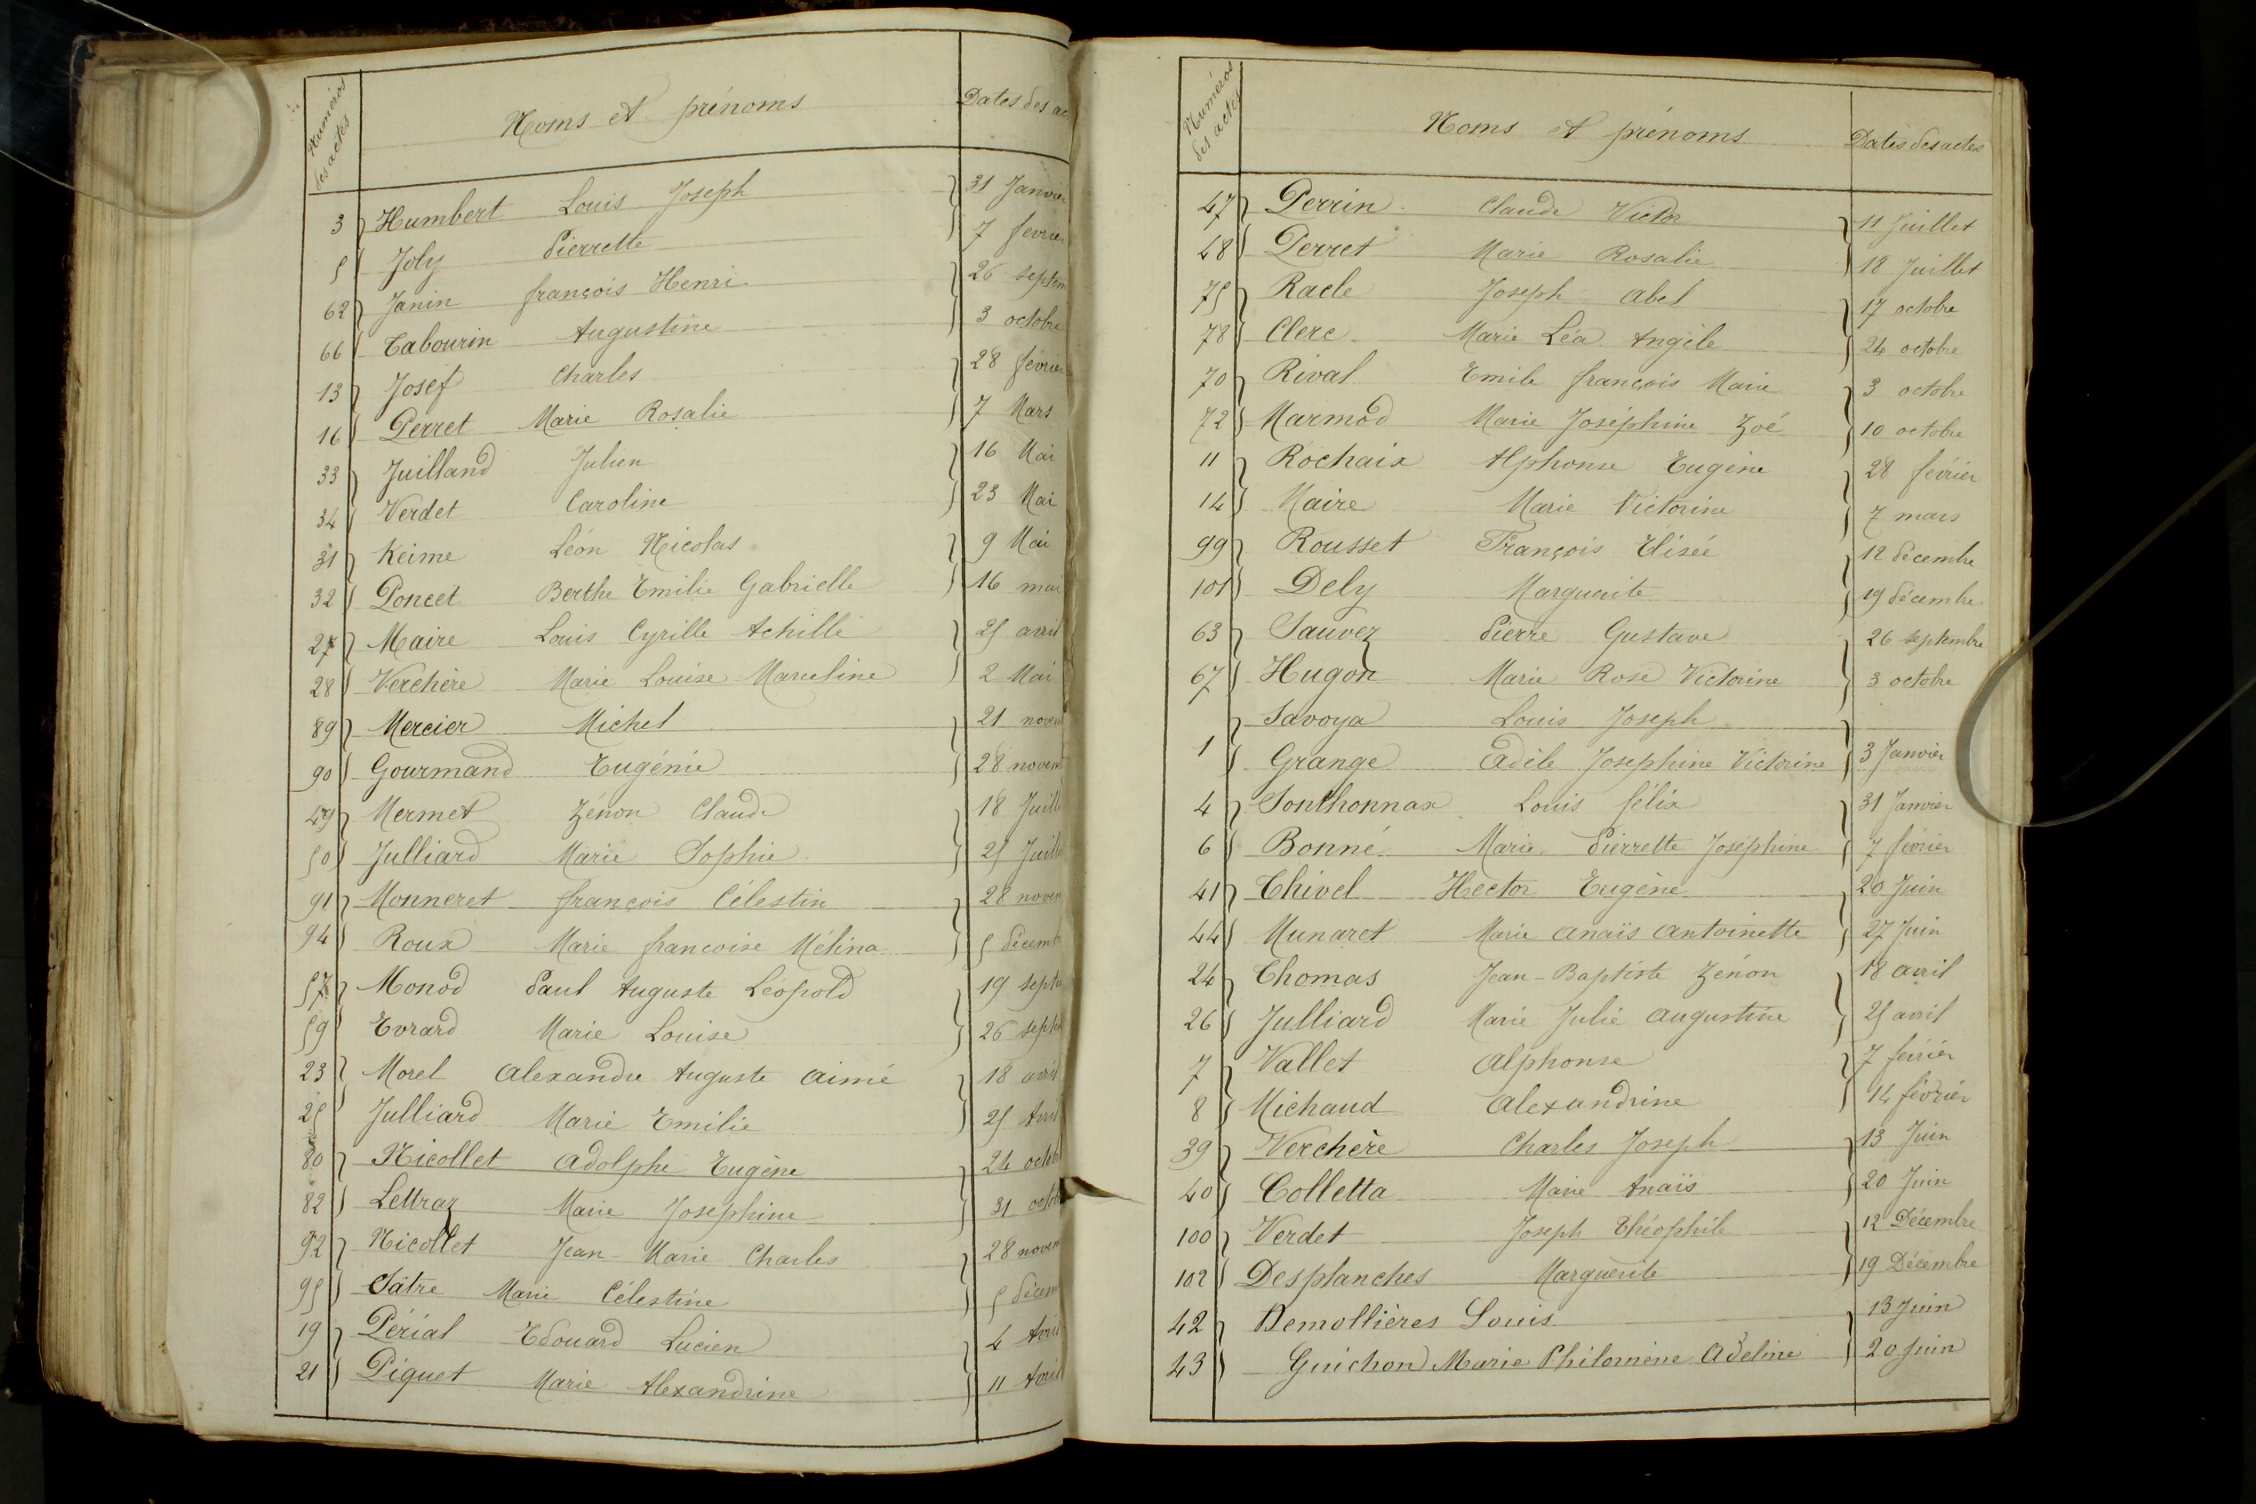 Numéros des actes Noms et prénoms Dates des ac
3 Humbert Louis Joseph 31 Janvier
5 Joly Pierrette 7 fevrier
62 Janin françois Henri 26 septem
66 Tabourin Augustine 3 octobre
13 Josef Charles 28 février
16 Perret Marie Rosalie 7 Mars
33 Juilland Julien 16 Mai
34 Verdet Caroline 23 Mai
31 Keime Léon Nicolas 9 Mai
32 Poncet Berthe Emilie Gabrielle 16 mai
27 Maire Louis Cyrille Achille 25 avril
28 Verchère Marie Louise Marceline 2 Mai
89 Mercier Michel 21 novem
90 Gourmand Eugénie 28 novem
49 Mermet Zénon Claude 18 Juill
50 Julliard Marie Sophie 25 Juill
91 Monneret françois Célestin 28 novem
94 Roux Marie francoise Mélina 5 décemb
57 Monod Paul Auguste Léopold 19 septe
59 Evrard Marie Louise 26 septe
23 Morel Alexandre Auguste Aimé 18 avril
25 Julliard Marie Emilie 25 Avril
80 Nicollet Adolphe Eugène 24 octob
82 Lettraz Marie Josephine 31 octob
92 Nicollet Jean-Marie Charles 28 novem
95 Sâtre Marie Célestine 5 décem
19 Périal Edouard Lucien 4 Avril
21 Piquet Marie Alexandrine 11 Avril
Numéros des actes Noms et prénoms Dates des actes
47 Perrin Claude Victor 11 Juillet
48 Perret Marie Rosalie 18 Juillet
75 Racle Joseph Abel 17 octobre
78 Clerc Marie Léa Angèle 24 octobre
70 Rival Emile françois Marie 3 octobre
72 Marmod Marie Joséphine Zoé 10 octobre
11 Rochaix Alphonse Eugène 28 février
14 Maire Marie Victorine 7 mars
99 Rousset François Elisée 12 décembre
101 Dely Marguerite 19 décembre
63 Sauvez Pierre Gustave 26 septembre
67 Hugon Marie Rose Victorine 3 octobre
Savoya Louis Joseph
1 Grange Adèle Josephine Victorine 3 Janvier
4 Sonthonnax Louis félix 31 Janvier
6 Bonné Marie Pierrette Joséphine 7 février
41 Thivel Hector Eugène 20 Juin
44 Munaret Marie Anaïs Antoinette 27 Juin
24 Thomas Jean-Baptiste Zénon 18 avril
26 Julliard Marie Julie Augustine 25 avril
7 Vallet Alphonse 7 février
8 Michaud Alexandrine 14 février
39 Verchère Charles Joseph 13 Juin
40 Colletta Marie Anaïs 20 Juin
100 Verdet Joseph Théophile 12 Décembre
102 Desplanches Marguerite 19 Décembre
42 Demollières Louis 13 Juin
43 Guichon Marie Philomène Adeline 20 Juin